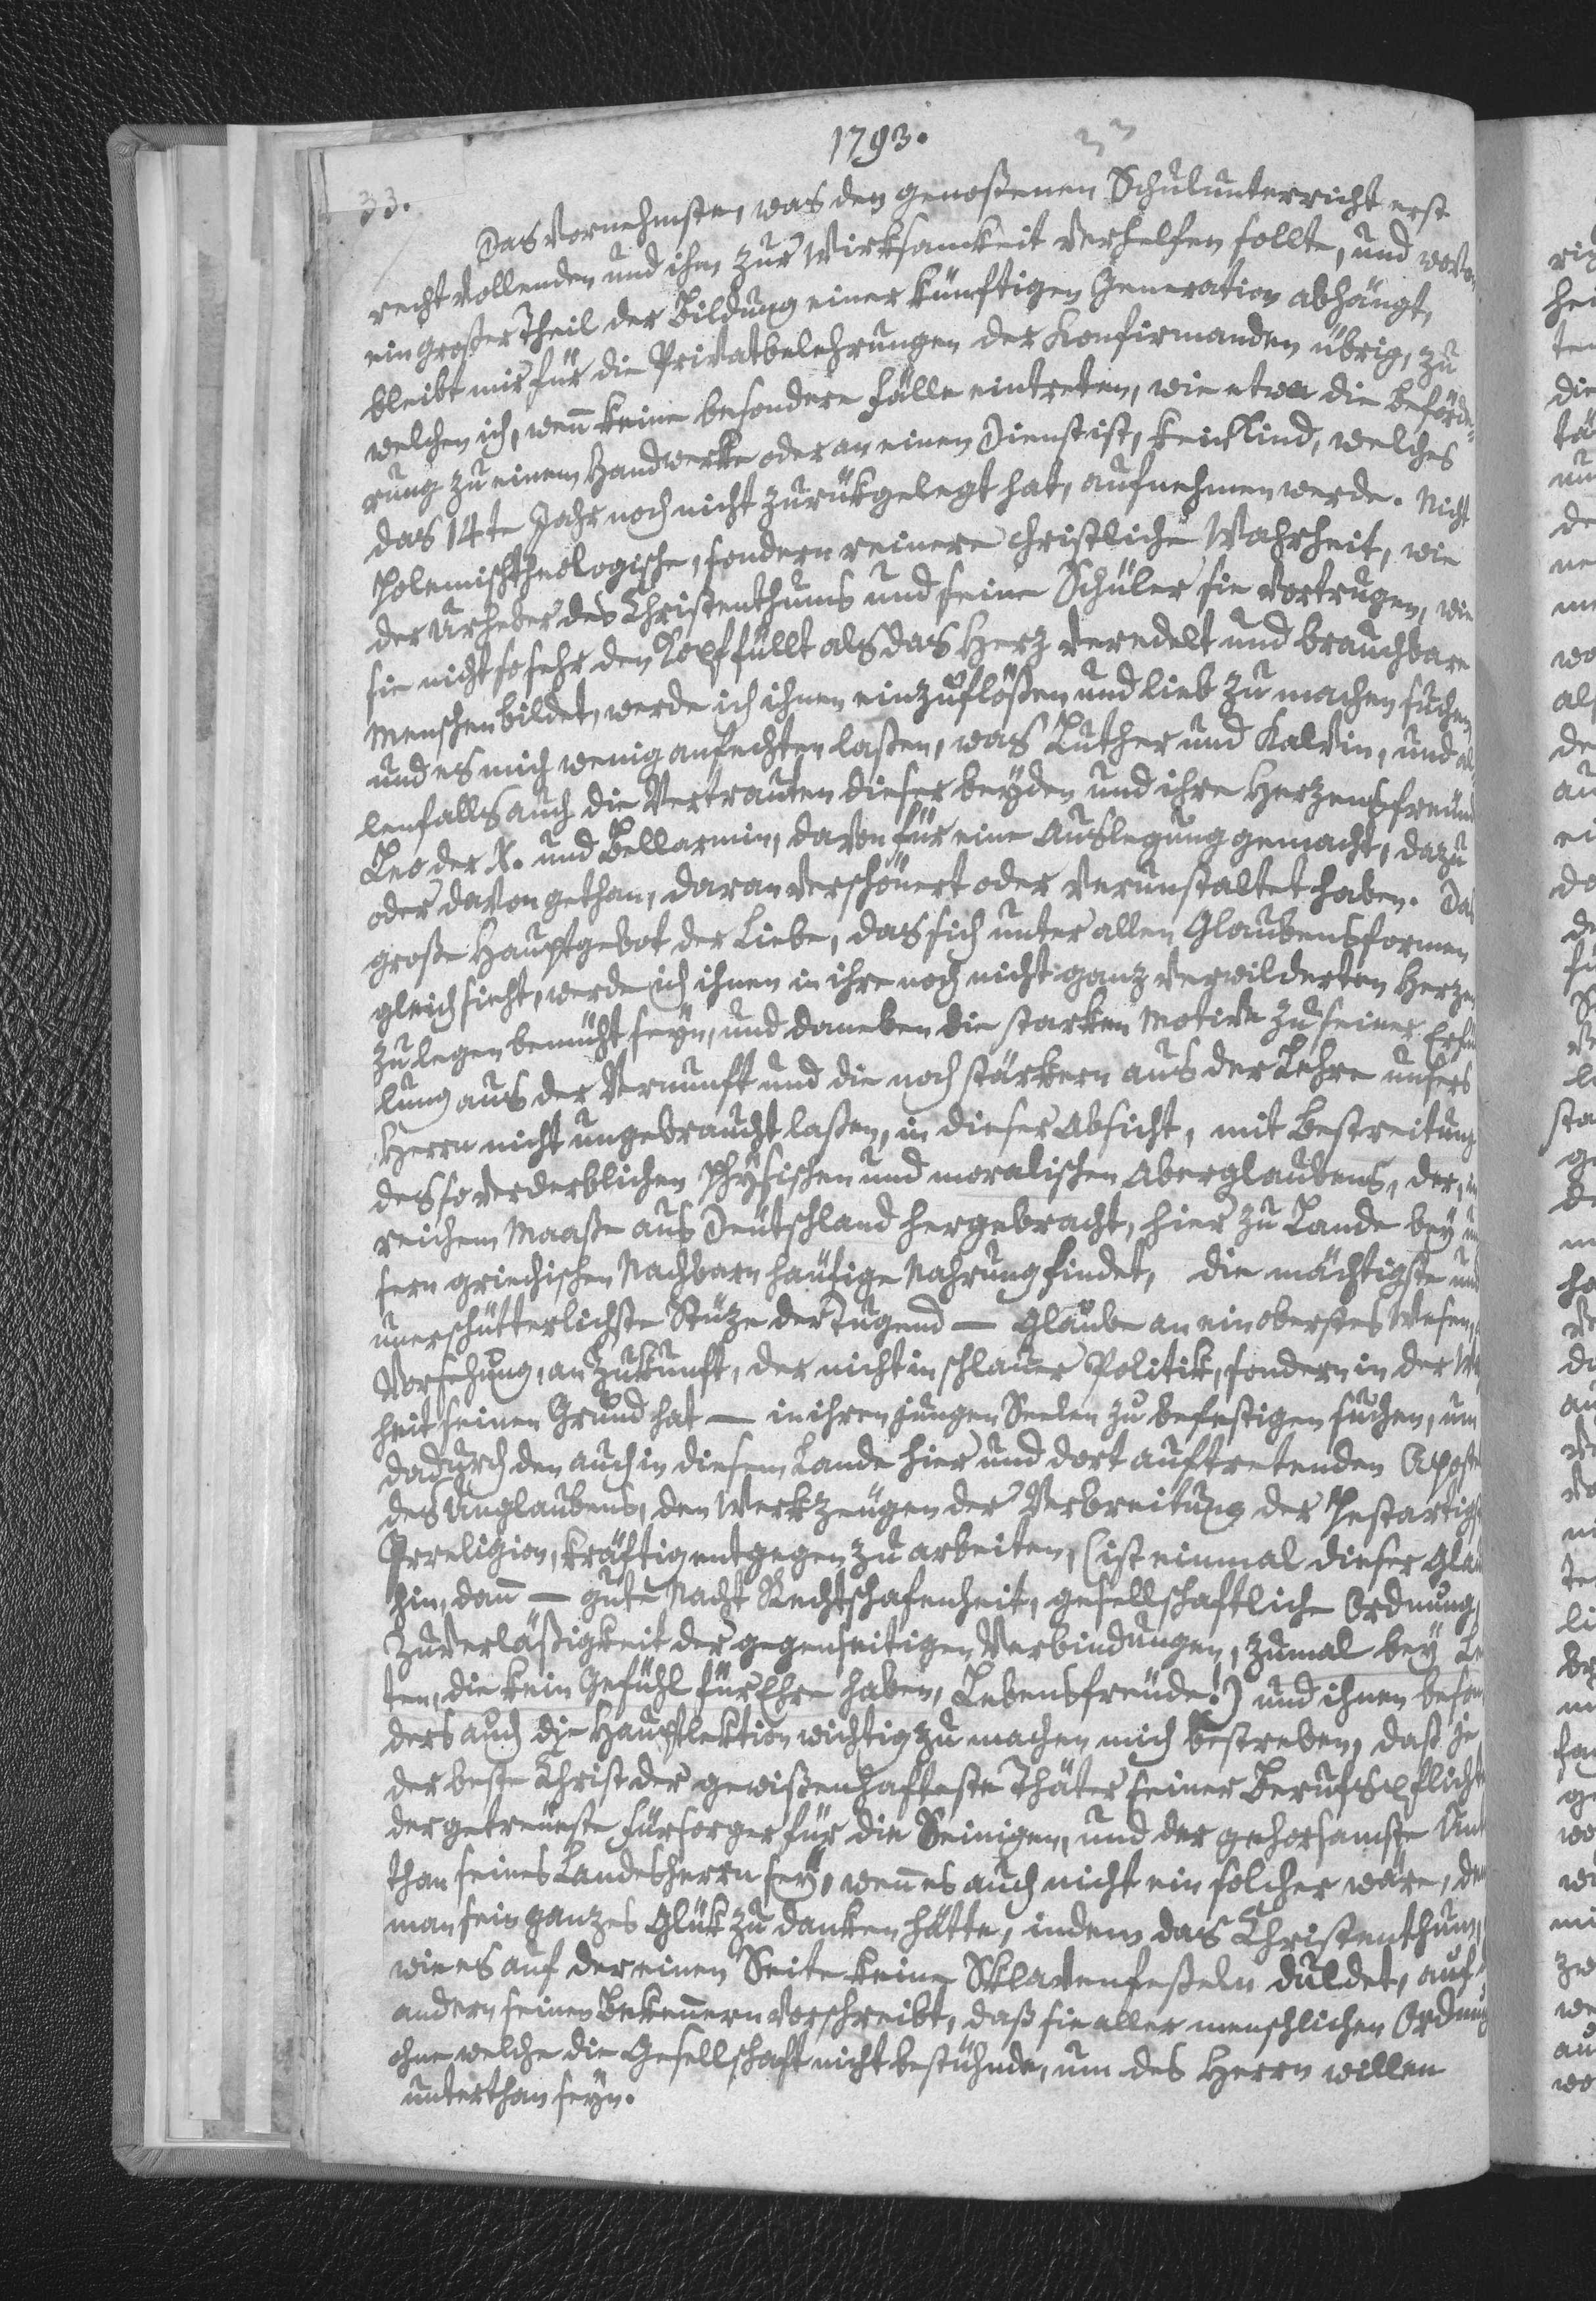 1793.
33
33.
Das Vornehmste, was den genoßenen Schulunterricht erst
recht vollenden und ihm zur Wirksamkeit verhelfen sollte, und wovon
ein großer Theil der Bildung einer künftigen Generation abhängt,
bleibt mir für die Privatbelehrungen der Konfirmanden übrig, zu
welchen ich, wenn keine besondere Fälle eintreten, wie etwa die Beförde¬
rung zu einem Handwerke oder an einen Dienst ist, kein Kind, welches
das 14te Jahr noch nicht zurükgelegt hat, aufnehmen werde. Nicht
Polemischtheologische, sondern reinere christliche Wahrheit, wie
der Urheber des Christenthums und seine Schüler sie vortrugen, wie
sie nicht so sehr den Kopf füllt als das Herz veredelt und brauchbare
Menschen bildet, werde ich ihnen einzuflößen und lieb zu machen suchen,
und es mich wenig anfechten laßen, was Luther und Kalvin, und al¬
lenfalls auch die Vertrauten dieser beyden und ihre Herzensfreund
Leo der X. und Bellarmin, davon für eine Auslegung gemacht, dazu
oder davon gethan, daran verschönert oder verunstaltet haben. Das
große Hauptgebot der Liebe, das sich unter allen Glaubensformen
gleich sieht, werde ich ihnen in ihre noch nicht ganz verwilderten Herzen
zu legen bemüht seyn, und daneben die starken Motive zu seiner Erfül
lung aus der Vernunft und die noch stärkern aus der Lehre unsers
Herrn nicht ungebraucht laßen, in dieser Absicht, mit Bestreitung
des so verderblichen physischen und moralischen Aberglaubens, der, in
reichem Maaße aus Deutschland hergebracht, hier zu Lande bey un
sern griechischen Nachbarn häufige Nahrung findet, die mächtigste und
unerschütterlichste Stüze der Tugend — Glaube an ein oberstes Wesen,
Vorsehung, an Zukunft, der nicht in schlauer Politik, sondern in der Wa
heit seinen Grund hat — in ihren jungen Seelen zu befestigen suchen, um
dadurch den auch in diesem Lande hier und dort auftretenden Aposte
des Unglaubens, den Werkzeugen der Verbreitung der Pestartig
Irreligion, kräftig entgegen zu arbeiten, (ist einmal dieser Glau
hin, dann — gute Nacht Rechtschafenheit, gesellschaftliche Ordnung,
Zuverläßigkeit der gegenseitigen Verbindungen, zumal bey Le
ten, die kein Gefühl für Ehre haben, Lebensfreude!) und ihnen beson
ders auch die Hauptlektion wichtig zu machen mich bestreben, daß je
der beste Christ der gewißenhafteste Thäter seiner Berufspflicht
der getreueste Fürsorger für die Seinigen, und der gehorsamste Unt
than seines Landesherrn sey, wenn es auch nicht ein solcher wäre, dem
man sein ganzes Glük zu danken hätte, indem das Christenthum,
wie es auf der einen Seite keine Sklavenfeßeln duldet, auf d
andern seinen Bekennern vorschreibt, daß sie aller menschlichen Ordnung
ohne welche die Gesellschaft nicht bestühnde, um des Herrn willen
unterthan seyn.